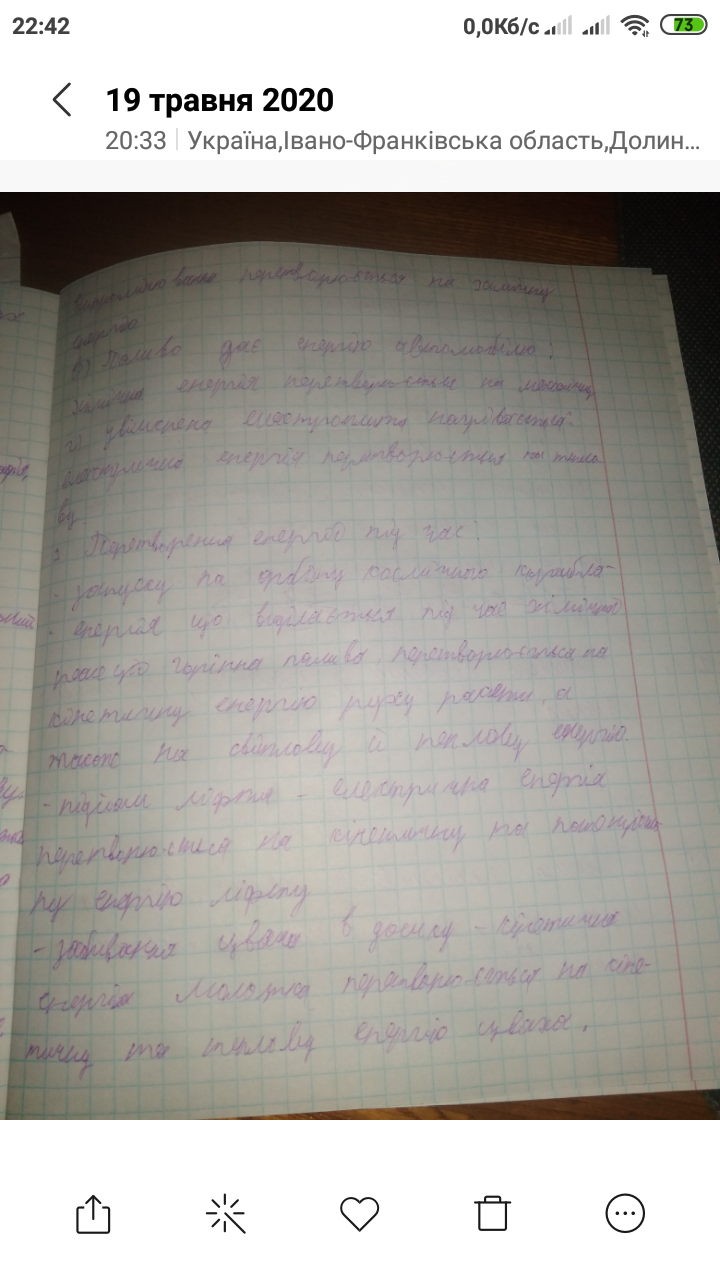 22:42
0,0Кб/с
73
19 травня 2020
20:33
Україна,Івано-Франківська область,Долин...
перетворюється на хімічну
енергію
в) Паливо дає енергію автомобілю:
хімічна енергія перетворюється на механічну
г) увімкнена електроплита нагрівається:
енергія перетворюється на тепло
ву
Перетворення енергії під час:
- запуску на орбіту космічного корабля-
- енергія що виділяється під час хімічної
горіння палива, перетворюється на
кінетичну енергію руху ракети, а
також на світлову й теплову енергію.
- підйом ліфта - електрична енергія
перетворюється на кінетичну та потенціаль
ну енергію ліфту
- забивання цвяха в дошку - кінетична
енергія молотка перетворюється на кіне-
тичну та теплову енергію цвяха.